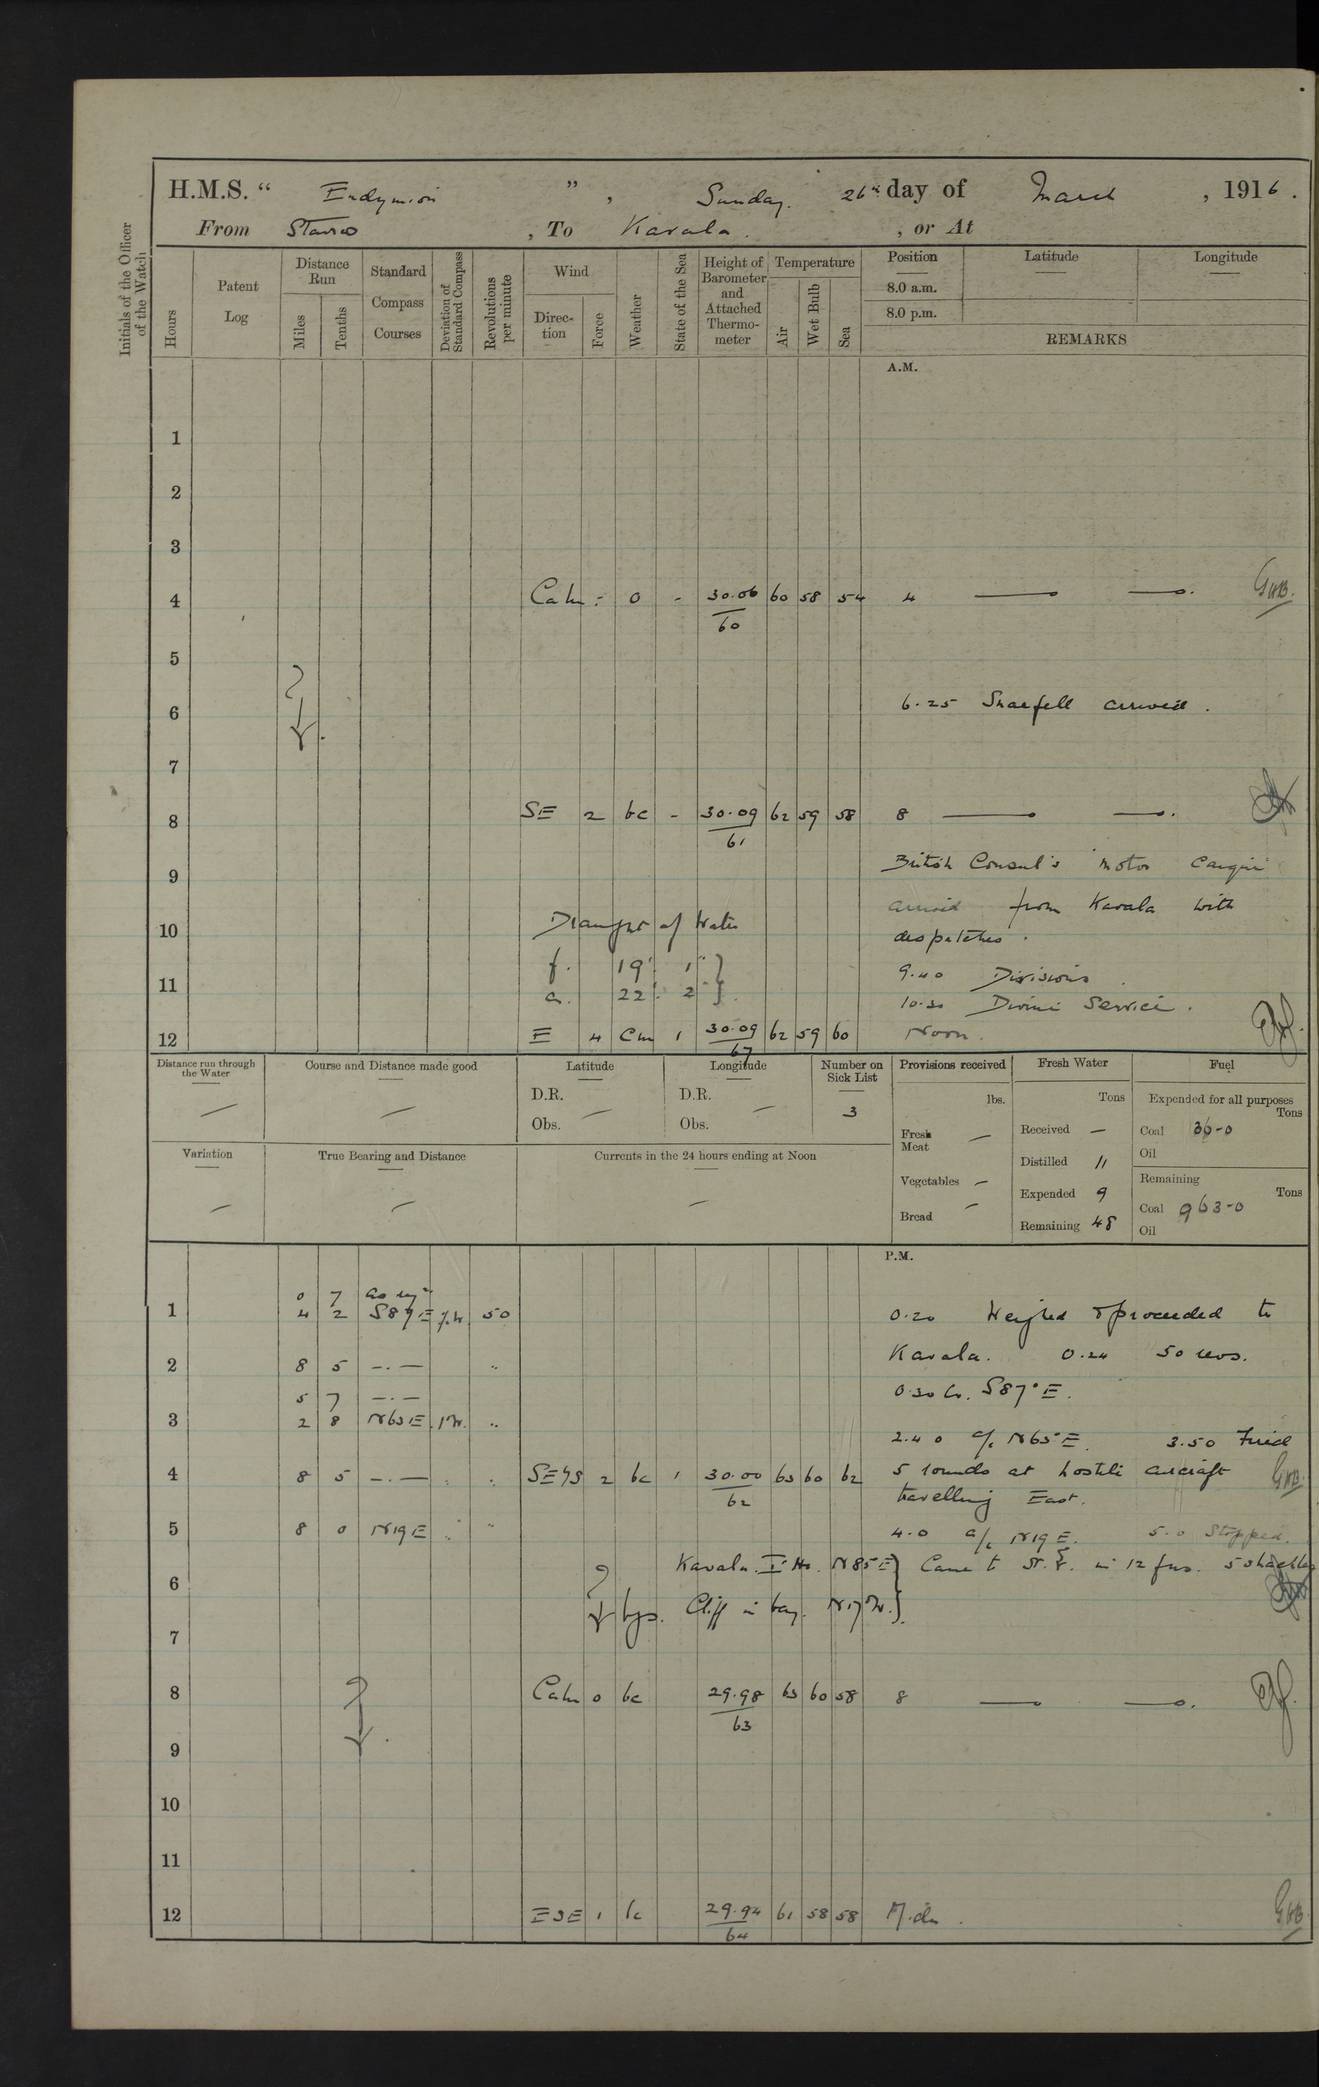 H.M.S. “ Endymion ” , Sunday. 26th day of March , 1916 .
From Stavro , To Kavala . , or At
Initials of the Officer of the Watch
Hours
Patent Log
Distance Run
Miles
Tenths
Standard Compass Courses
Deviation of Standard Compass
Revolutions per minute
Wind
Direc- tion
Force
Weather
State of the Sea
Height of Barometer and Attached Thermo- meter
Temperature
Air
Wet Bulb
Sea
Position Latitude Longitude
8.0 a.m.
8.0 p.m.
REMARKS
A.M.
1
2
3
4 Calm - 0 - 30.06 60 58 54 4 — —.
60
5
6 6.25 Snaefell arrived .
7
8 SE 2 bc - 30.09 62 59 58 8 — —.
61
British Consul's motor
9
arrived from Kavala with
10 Draught of Water
despatches .
f. 19' 1" }
9.40 Divisions .
11
a. 22' 2" }
10.30 Divine Service .
12 E 4 cm 1 30.09 62 59 60 Noon.
67
Distance run through the Water
Course and Distance made good
Latitude
D.R.
Obs.
Longitude
D.R.
Obs.
Number on Sick List
3
Provisions received
lbs.
Fresh Meat —
Vegetables —
Bread —
Fresh Water
Tons
Received —
Distilled 11
Expended 9
Remaining 48
Fuel
Expended for all purposes
Tons
Coal 36-0
Oil
Remaining
Tons
Coal 963-0
Oil
Variation
True Bearing and Distance
Currents in the 24 hours ending at Noon
P.M.
0 7 as reqd
1 4 2 S87E 50 0.20 Weighed & proceeded to
2 8 5 —.— " Kavala. 0.24 50 revs.
5 7 —.— 0.30 Co. S87°E.
3 2 8 N63E 1W. "
2.40 a/c N63°E. 3.50 Fired
4 8 5 —.— " SE'ly 2 bc 1 30.00 63 60 62 5 rounds at hostile aircraft
62
travelling East.
5 8 0 N19E " 4.0 a/c N19E. 5.0 Stopped.
Kavala. I. Ho. N85E } Came to St. & in 12 fms. 5 shackles
6
bgs. Cliff in bay. N17W. }
7
8 Calm 0 bc 29.98 63 60 58 8 — —.
63
9
10
11
12 ESE 1 bc 29.94 61 58 58 Mdn .
64